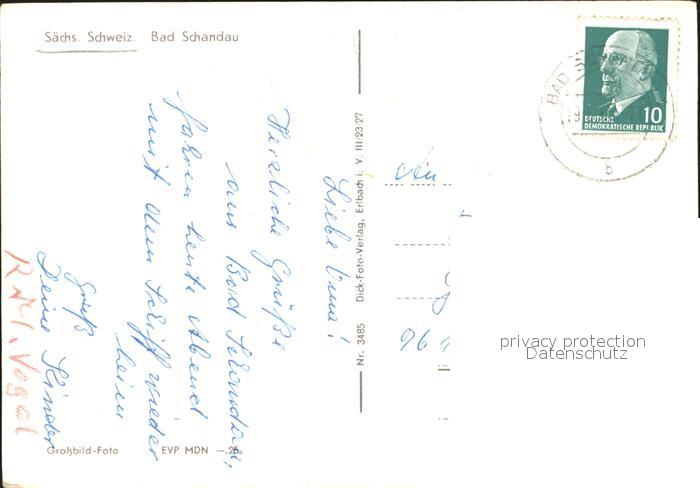 Sächs. Schweiz. Bad Schandau
DEUTSCHE
DEMOKRATISCHE REPUBLIK
10
BAD SCHANDAU
b
Liebe Oma!
Herzliche Grüße
aus Bad Schandau,
fahren heute Abend
mit dem Schiff wieder
heim
Gruß
Deine Kinder
R. Vogel
An
96
Nr. 3485 Dick-Foto-Verlag, Erlbach i. V. III/23/27
Großbild-Foto EVP MDN —.25
privacy protection
Datenschutz